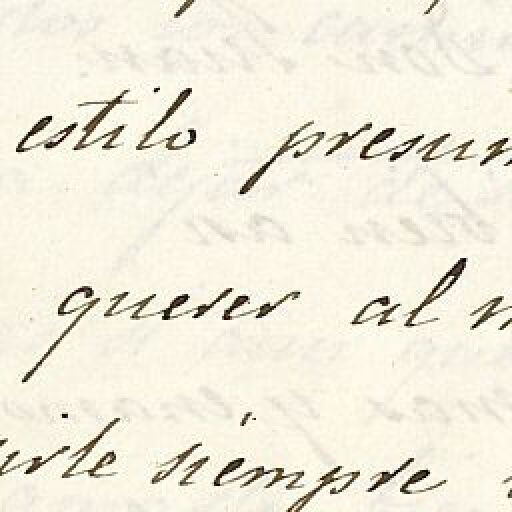 estilo presun
querer al m
irle siémpre